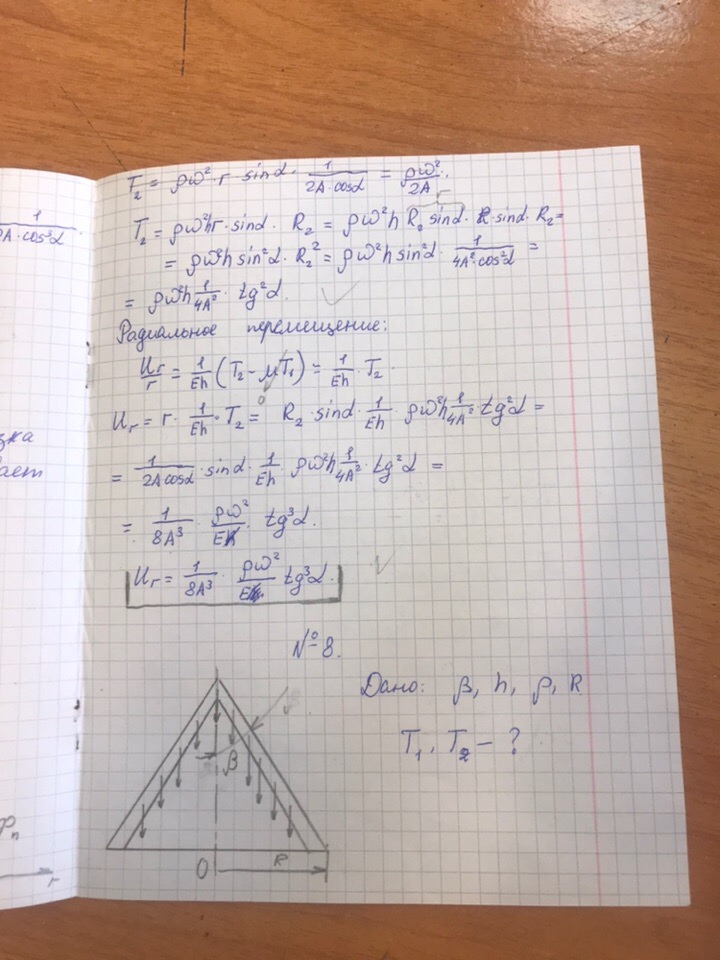 1
2A·cos²α
T₂ = ρω²·r sinα · 1/(2A·cosα) = ρω²/2A.
r
T₂ = ρω²hr·sinα · R₂ = ρω²h R₂ sinα · sinα · R₂ =
= ρω²h sin²α · R₂² = ρω²h sin²α · 1/(4A²·cos²α) =
= ρω²h 1/4A² · tg²α.
Радиальное перемещение:
Uг/г = 1/Eh (T₂ - μT₁) = 1/Eh · T₂.
0
Uг = г · 1/Eh · T₂ = R₂ · sinα · 1/Eh · ρω²h 1/4A² · tg²α =
= 1/(2Acosα) · sinα · 1/Eh · ρω²h 1/4A² · tg²α =
= 1/8A³ · ρω²/E · tg³α.
Uг = 1/8A³ · ρω²/E tg³α.
№8.
Дано: β, h, ρ, R
T₁, T₂ - ?
β
O R
r